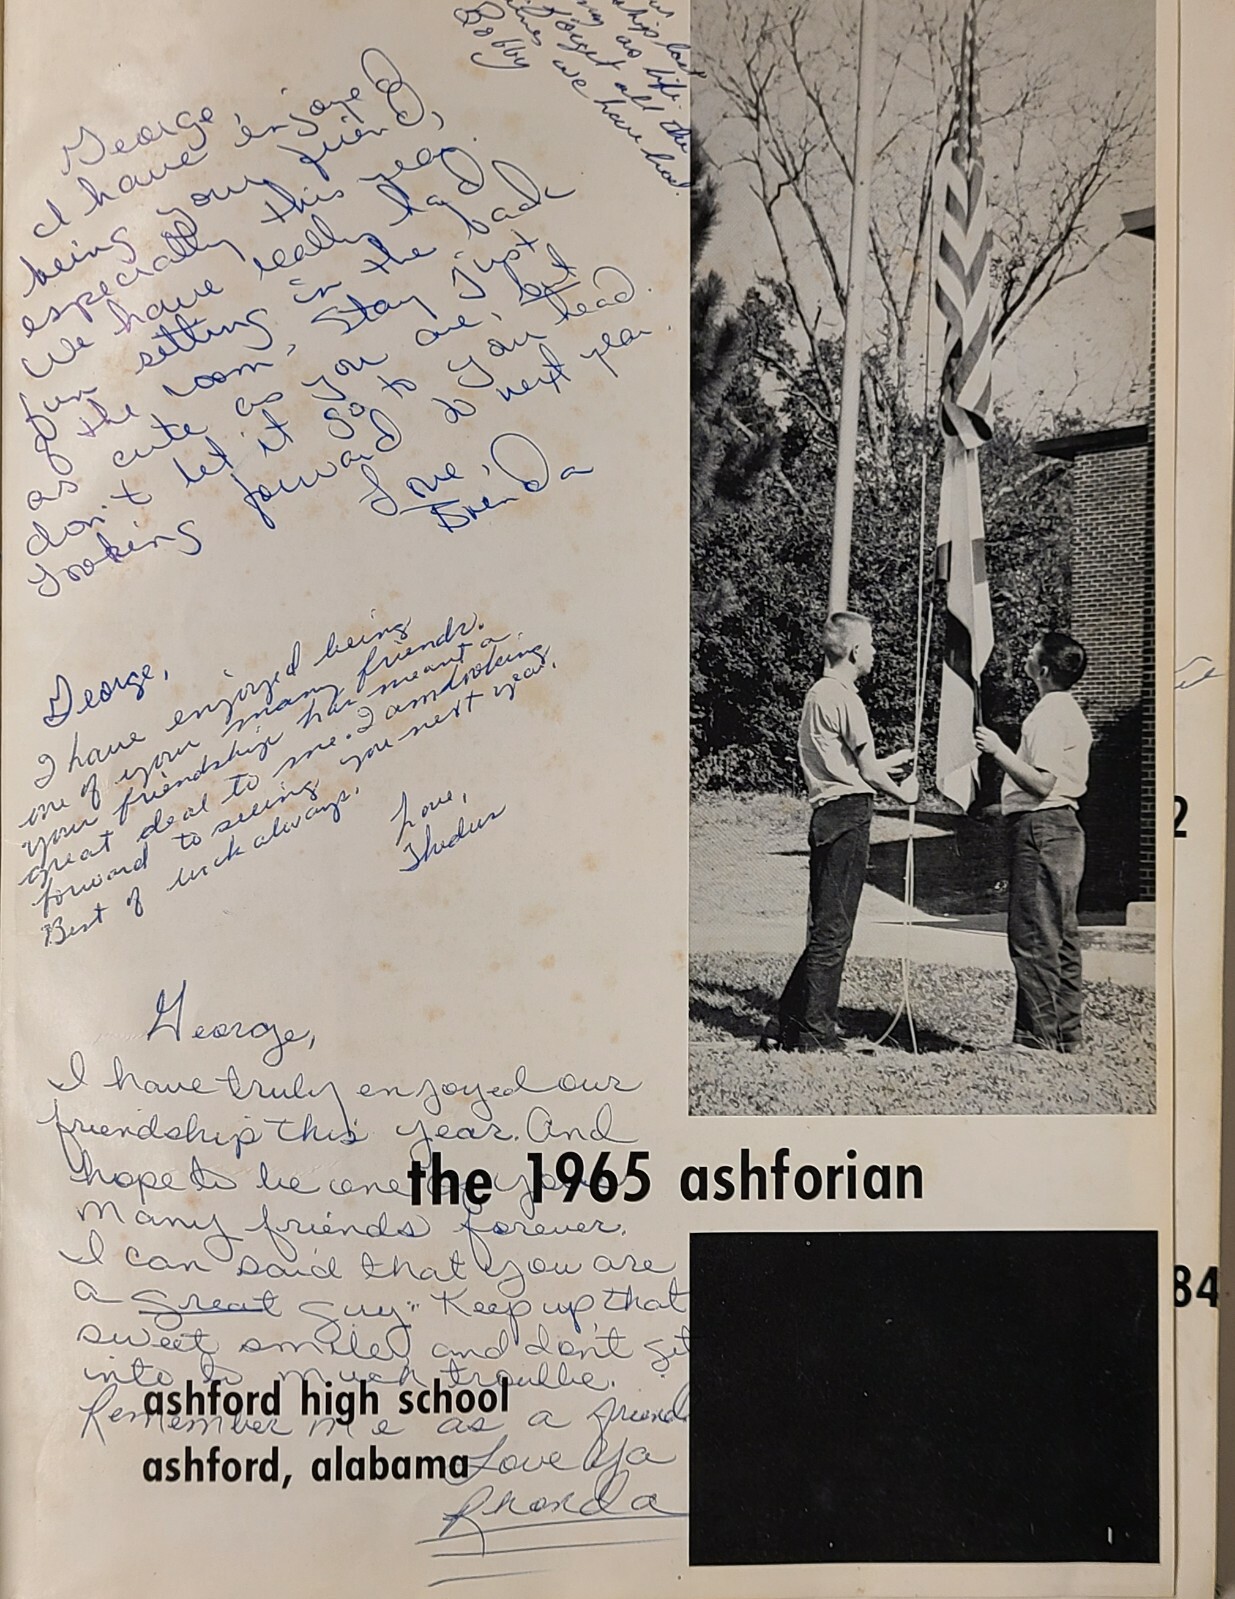 ship last
as life.
forget all the
times we have had.
Bobby
George,
I have enjoyed
being your friend,
especially this year.
We have really had
fun setting in the back
of the room, Stay just
as cute as you are, but
don't let it go to your head.
Looking forward to next year.
Love,
Brenda
George,
I have enjoyed being
one of your many friends.
your friendship has meant a
great deal to me. I am looking
forward to seeing you next year.
Best of luck always.
Love,
George,
I have truly enjoyed our
friendship this year. And
hope to be one of your
many friends forever.
I can said that you are
a great guy." Keep up that
sweet smile and don't get
into to much trouble.
Remember me as a friend
Love Ya
Rhonda
the 1965 ashforian
ashford high school
ashford, alabama
2
84